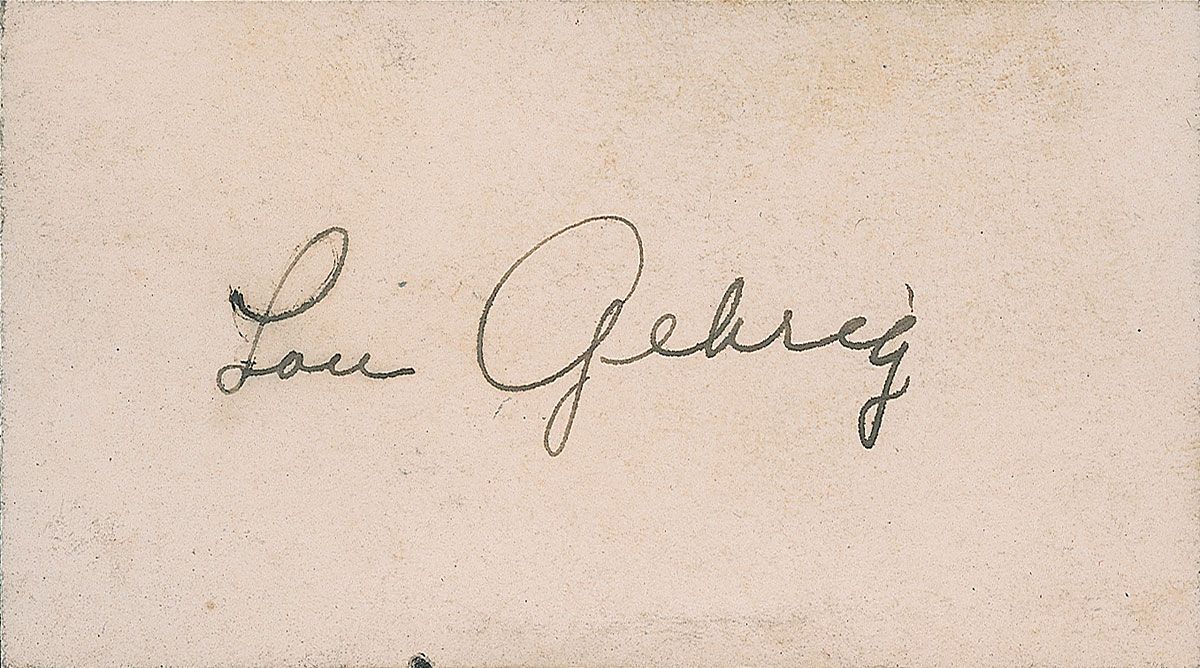 Lou Gehrig